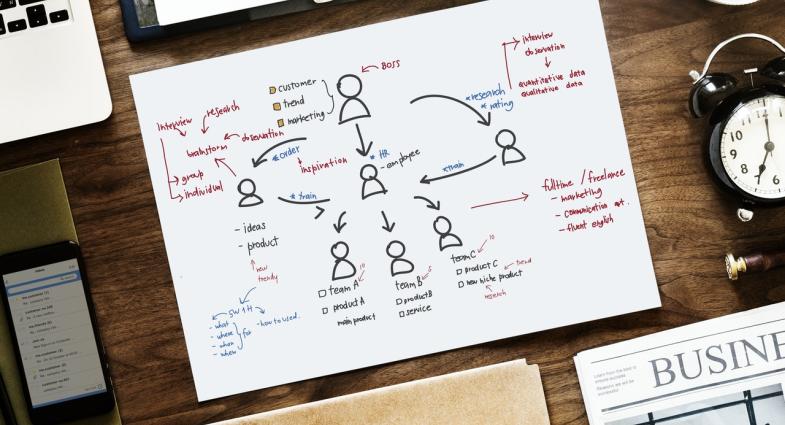 BOSS
customer
trend
marketing
interview
observation
quantitative data
qualitative data
*research
*rating
interview
research
observation
brainstorm
group
individual
*order
inspiration
* HR
- employee
*train
*train
- ideas
- product
new
trendy
5W1H
- what
- where
- when
- who
for
- how to used.
team A
10
product A
main product
team B
product B
service
team C
10
product C
new niche product
trend
research
fulltime / freelance
- marketing
- fluent english
BUSINE